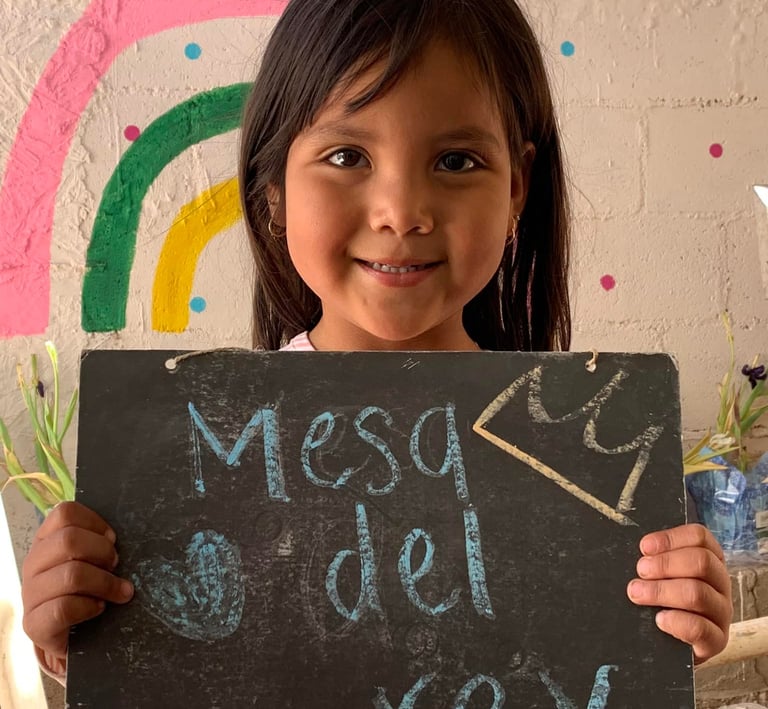 Mesa
del
rey